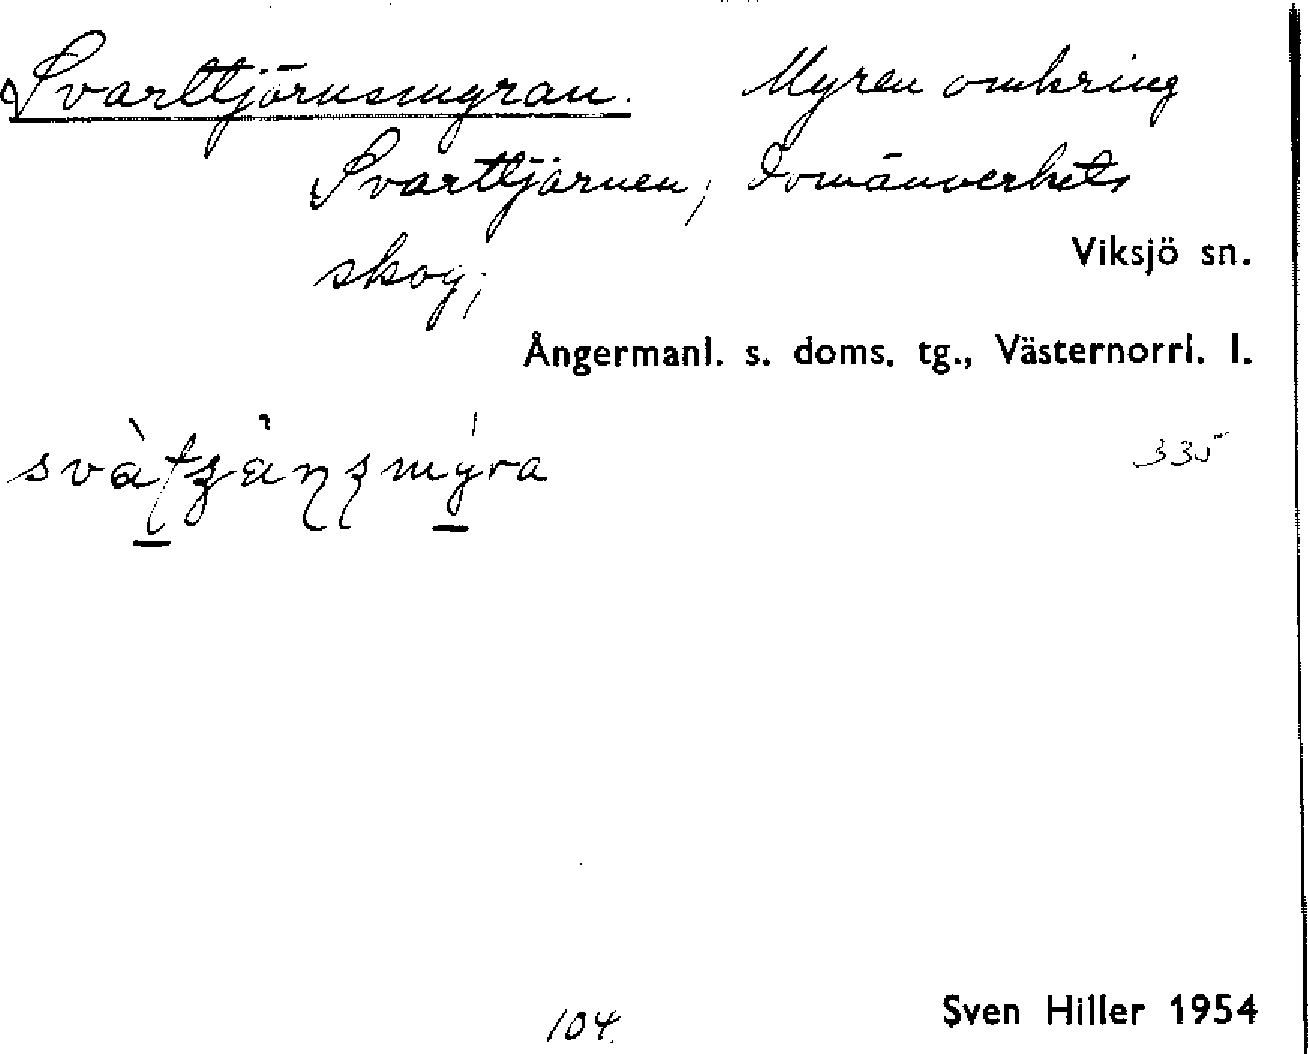 Svarttjärnsmyran. Myren omkring
Svarttjärnen; Domänverkets
skog;
Viksjö sn.
Ångermanl. s. doms. tg., Västernorrl. l.
335
104.
Sven Hiller 1954